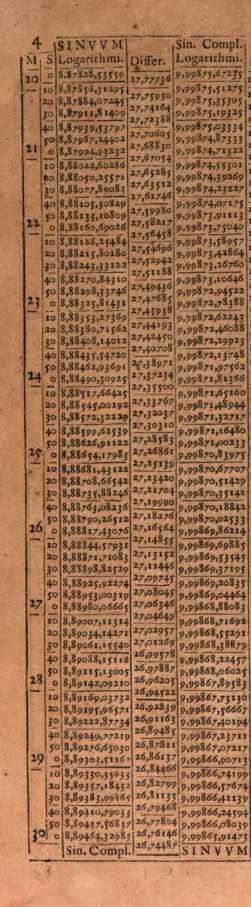 4 SINVVM Sin. Compl.
M S Logarithmi. Differ. Logarithmi.
20 0 8,87828,53559 27,77736 9,99875,67235
10 8,87856,31295 27,75950 9,99875,51275
20 8,87884,07245 27,74164 9,99875,35305
30 8,87911,81409 27,72388 9,99875,19325
40 8,87939,53797 27,70605 9,99875,03334
50 8,87967,24402 27,68830 9,99874,87333
21 0 8,87994,93232 27,67054 9,99874,71322
10 8,88022,60286 27,65285 9,99874,55301
20 8,88050,25571 27,63512 9,99874,39269
30 8,88077,89083 27,61746 9,99874,23227
40 8,88105,50829 27,59980 9,99874,07175
50 8,88133,10809 27,58217 9,99873,91113
22 0 8,88160,69026 27,56458 9,99873,75040
10 8,88188,25484 27,54696 9,99873,58957
20 8,88215,80180 27,52942 9,99873,42864
30 8,88243,33122 27,51188 9,99873,26760
40 8,88270,84310 27,49436 9,99873,10646
50 8,88298,33746 27,47685 9,99872,94522
23 0 8,88325,81431 27,45938 9,99872,78388
10 8,88353,27369 27,44193 9,99872,62243
20 8,88380,71562 27,42450 9,99872,46088
30 8,88408,14012 27,40708 9,99872,29923
40 8,88435,54720 27,38971 9,99872,13748
50 8,88462,93691 27,37234 9,99871,97562
24 0 8,88490,30925 27,35500 9,99871,81366
10 8,88517,66425 27,33767 9,99871,65160
20 8,88545,00192 27,32037 9,99871,48944
30 8,88572,32229 27,30310 9,99871,32717
40 8,88599,62539 27,28583 9,99871,16480
50 8,88626,91122 27,26861 9,99871,00233
25 0 8,88654,17983 27,25139 9,99870,83975
10 8,88681,43122 27,23420 9,99870,67707
20 8,88708,66542 27,21704 9,99870,51429
30 8,88735,88246 27,19990 9,99870,35141
40 8,88763,08236 27,18276 9,99870,18842
50 8,88790,26512 27,16564 9,99870,02533
26 0 8,88817,43076 27,14855 9,99869,86214
10 8,88844,57931 27,13152 9,99869,69885
20 8,88871,71083 27,11446 9,99869,53545
30 8,88898,82529 27,09745 9,99869,37195
40 8,88925,92274 27,08045 9,99869,20835
50 8,88953,00319 27,06346 9,99869,04464
27 0 8,88980,06665 27,04649 9,99868,88083
10 8,89007,11314 27,02957 9,99868,71692
20 8,89034,14271 27,01269 9,99868,55291
30 8,89061,15540 26,99578 9,99868,38879
40 8,89088,15118 26,97887 9,99868,22457
50 8,89115,13005 26,96205 9,99868,06025
28 0 8,89142,09210 26,94522 9,99867,89583
10 8,89169,03732 26,92839 9,99867,73130
20 8,89195,96571 26,91163 9,99867,56667
30 8,89222,87734 26,89485 9,99867,40194
40 8,89249,77219 26,87811 9,99867,23711
50 8,89276,65030 26,86137 9,99867,07217
29 0 8,89303,51167 26,84466 9,99866,90713
10 8,89330,35633 26,82799 9,99866,74199
20 8,89357,18432 26,81133 9,99866,57674
30 8,89383,99565 26,79468 9,99866,41139
40 8,89410,79033 26,77804 9,99866,24594
50 8,89437,56837 26,76146 9,99866,08039
30 0 8,89464,32983 26,74487 9,99865,91473
Sin. Compl. SINVVM